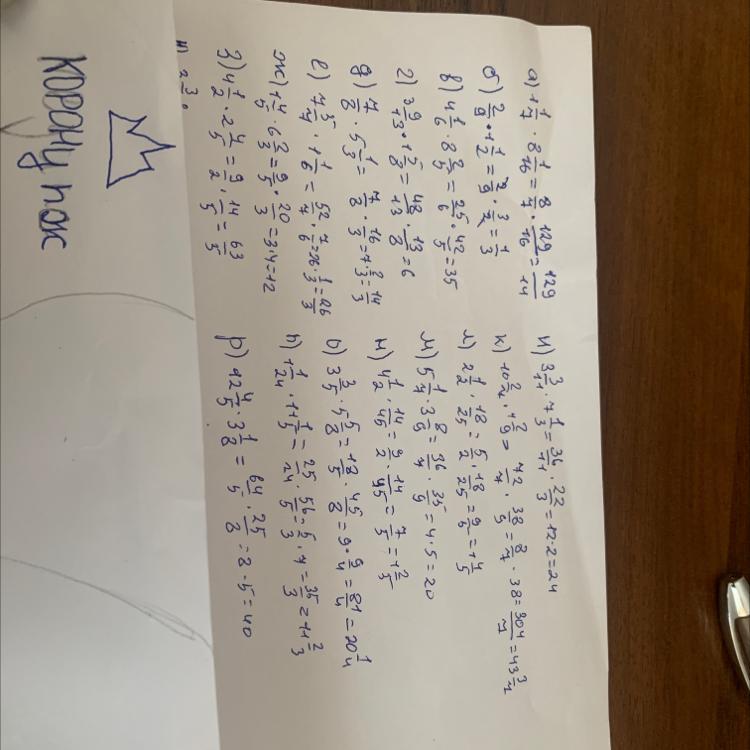 а) 1 1/7 · 8 1/16 = 8/7 · 129/16 = 129/14
б) 2/9 · 1 1/2 = 2/9 · 3/2 = 1/3
в) 4 1/6 · 8 2/5 = 25/6 · 42/5 = 35
г) 3 9/13 · 1 5/8 = 48/13 · 13/8 = 6
д) 7/8 · 5 1/3 = 7/8 · 16/3 = 7 · 2/3 = 14/3
е) 7 3/7 · 1 1/6 = 52/7 · 7/6 = 26 · 1/3 = 26/3
ж) 1 4/5 · 6 2/3 = 9/5 · 20/3 = 3·4 = 12
з) 4 1/2 · 2 4/5 = 9/2 · 14/5 = 63/5
и) 3 3/11 · 7 1/3 = 36/11 · 22/3 = 12·2 = 24
к) 10 2/7 · 4 2/9 = 72/7 · 38/9 = 8/7 · 38 = 304/7 = 43 3/7
л) 2 1/2 · 18/25 = 5/2 · 18/25 = 9/5 = 1 4/5
м) 5 1/7 · 3 8/9 = 36/7 · 35/9 = 4·5 = 20
н) 4 1/2 · 14/45 = 9/2 · 14/45 = 7/5 = 1 2/5
о) 3 3/5 · 5 5/8 = 18/5 · 45/8 = 9 · 9/4 = 81/4 = 20 1/4
п) 1 1/24 · 11 1/5 = 25/24 · 56/5 = 5/3 · 7 = 35/3 = 11 2/3
р) 12 4/5 · 3 1/8 = 64/5 · 25/8 = 8·5 = 40
КОРОНУ